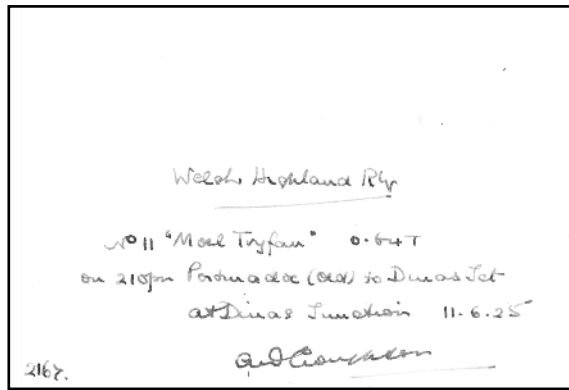 Welsh Highland Rly
No 11 "Moel Tryfan" 0.64T
on 210pm Portmadoc (old) to Dinas Jct
at Dinas Junction 11.6.25
2167.